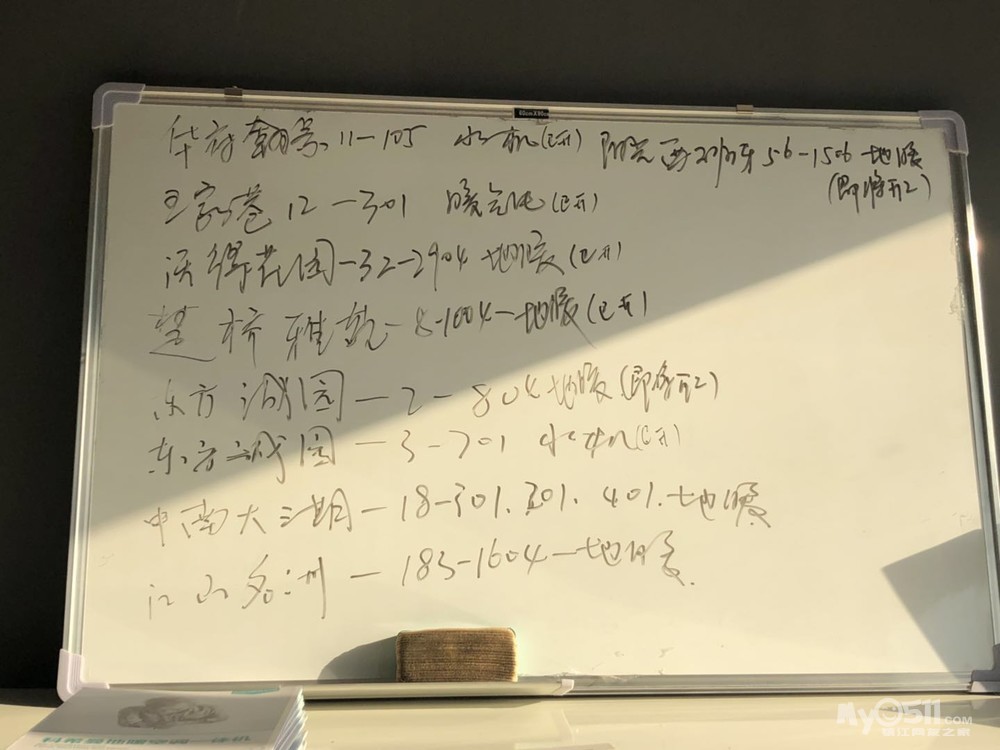 60cm×90cm
华府翰景 11-105 水机(已开)
阳光西班牙56-1506 地暖
(即将开工)
王家巷 12-301 暖气片(已开)
沃得花园-32-2904 地暖(已开)
楚桥雅苑-8-1004-地暖(已开)
东方城园-2-804地暖(即将开工)
东方城园-3-701 水机(已开)
中南大三期-18-301.301.401.地暖
江山名洲-183-1604-地暖.
My0511.COM
镇江网友之家